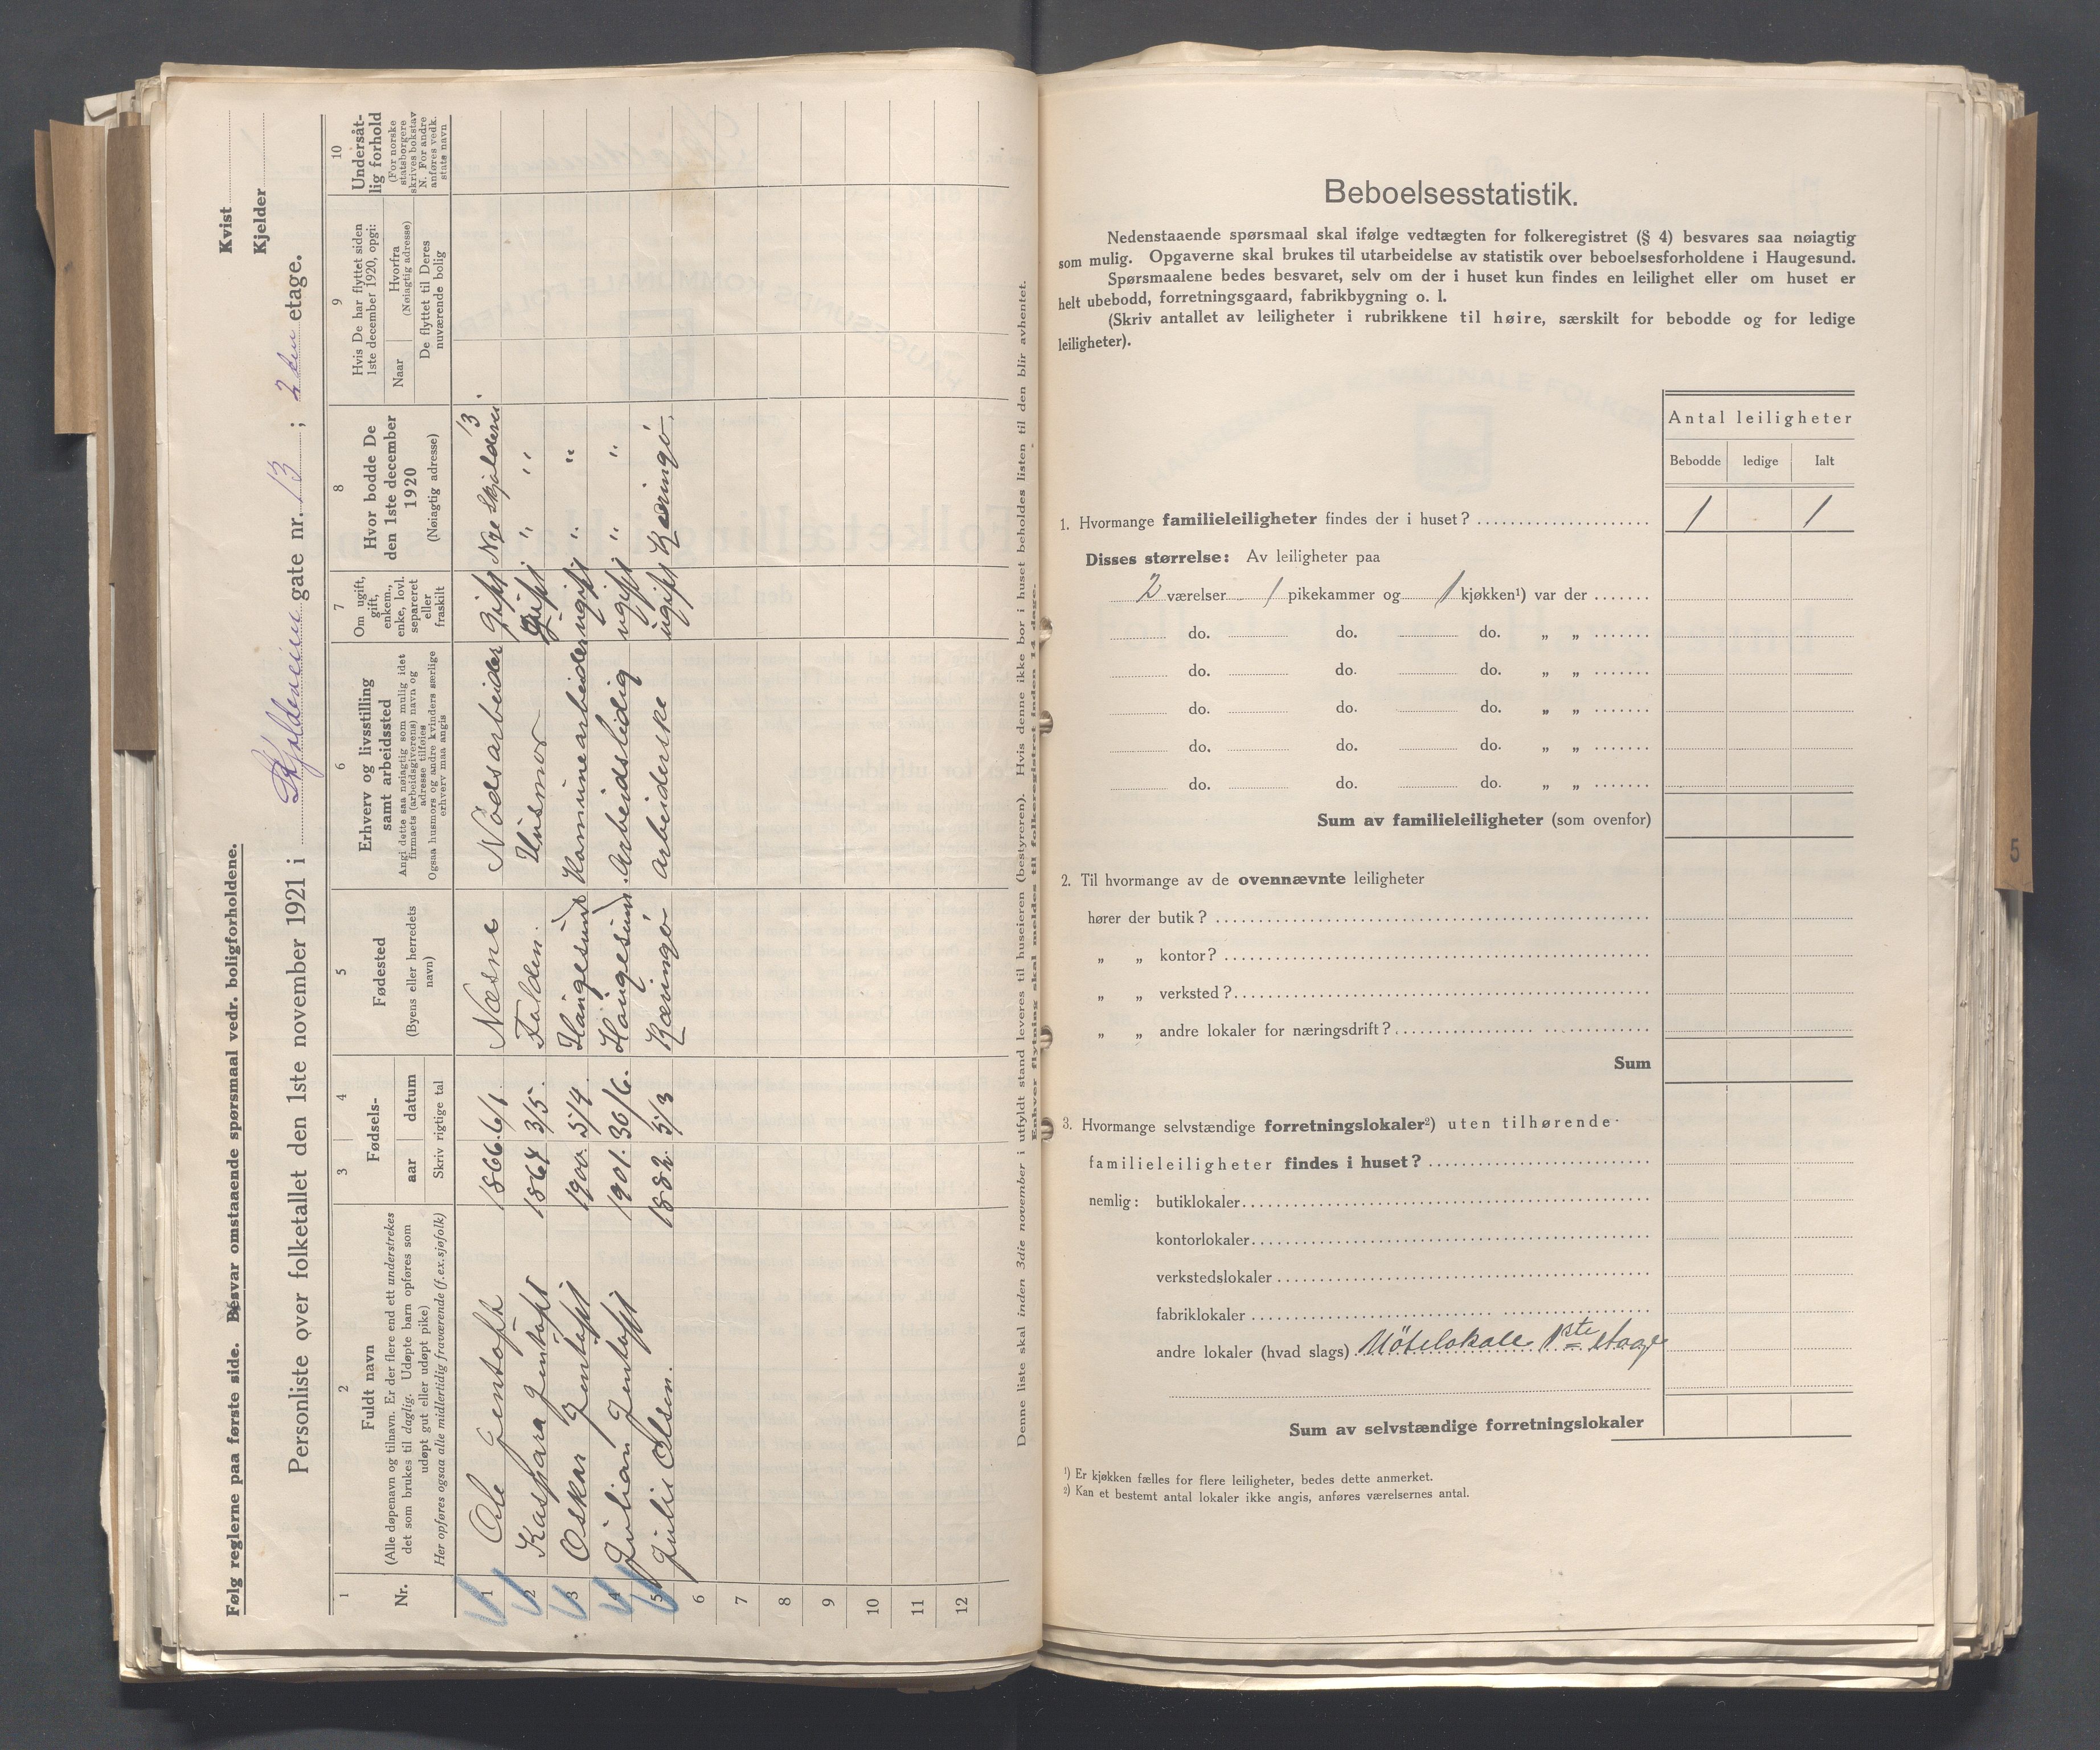 Følg reglerne paa første side. Besvar omstaaende spørsmaal vedr. boligforholdene.
Kvist
Kjelder
Personliste over folketallet den 1ste november 1921 i Skjoldaveien gate nr. 13 ; 2den etage.
1 2 3 4 5 6 7 8 9 10
Nr.
Fuldt navn
(Alle døpenavn og tilnavn. Er der flere end ett understrekes
det som brukes til daglig. Udøpte barn opføres som
udøpt gut eller udøpt pike)
Her opføres ogsaa alle midlertidig fraværende (f.ex. sjøfolk)
Fødsels-
aar datum
Skriv rigtige tal
Fødested
(Byens eller herredets
navn)
Erhverv og livsstilling
samt arbeidssted
Angi dette saa nøiagtig som mulig idet
firmaets (arbeidsgiverens) navn og
adresse tilføies
Ogsaa husmors og andre kvinders særlige
erhverv maa angis
Om ugift,
gift,
enkem.,
enke, lovl.
separeret
eller
fraskilt
Hvor bodde De
den 1ste december
1920
(Nøiagtig adresse)
Hvis De har flyttet siden
1ste december 1920, opgi:
Naar
Hvorfra
(Nøiagtig adresse)
De flyttet til Deres
nuværende bolig
Undersåt-
lig forhold
(For norske
statsborgere
skrives bokstav
N. For andre
anføres vedk.
stats navn
1 Ole Jentoft 1866. 6/1. Næsne Nødsarbeider gift Nye Skjoldavei 13.
2 Kaspara Jentoft 1864 3/5. Folden. Husmor gift " "
3 Oskar Jentoft 1900. 5/4 Haugesund Kommunearbeider ugift " "
4 Julian Jentoft 1901. 30/6. Haugesund. Arbeidsledig ugift " "
5 Julie Olsen. 1882. 5/3 Kæringø Arbeiderske ugift Kæringø.
6
7
8
9
10
11
12
Denne liste skal inden 3die november i utfyldt stand leveres til huseieren (bestyreren). Hvis denne ikke bor i huset beholdes listen til den blir avhentet.
Enhver flytning skal meldes til folkeregistret inden 14 dage.
Beboelsesstatistik.
Nedenstaaende spørsmaal skal ifølge vedtægten for folkeregistret (§ 4) besvares saa nøiagtig
som mulig. Opgaverne skal brukes til utarbeidelse av statistik over beboelsesforholdene i Haugesund.
Spørsmaalene bedes besvaret, selv om der i huset kun findes en leilighet eller om huset er
helt ubebodd, forretningsgaard, fabrikbygning o. l.
(Skriv antallet av leiligheter i rubrikkene til høire, særskilt for bebodde og for ledige
leiligheter).
Antal leiligheter
Bebodde ledige Ialt
1. Hvormange familieleiligheter findes der i huset? 1 1
Disses størrelse: Av leiligheter paa
2 værelser 1 pikekammer og 1 kjøkken¹) var der
do. do. do. „ „
do. do. do. „ „
do. do. do. „ „
do. do. do. „ „
do. do. do. „ „
Sum av familieleiligheter (som ovenfor)
2. Til hvormange av de ovennævnte leiligheter
hører der butik?
„ „ kontor?
„ „ verksted?
„ „ andre lokaler for næringsdrift?
Sum
3. Hvormange selvstændige forretningslokaler²) uten tilhørende
familieleiligheter findes i huset?
nemlig: butiklokaler
kontorlokaler
verkstedslokaler
fabriklokaler
andre lokaler (hvad slags) Mötelokale 1ste etage
Sum av selvstændige forretningslokaler
¹) Er kjøkken fælles for flere leiligheter, bedes dette anmerket.
²) Kan et bestemt antal lokaler ikke angis, anføres værelsernes antal.
5